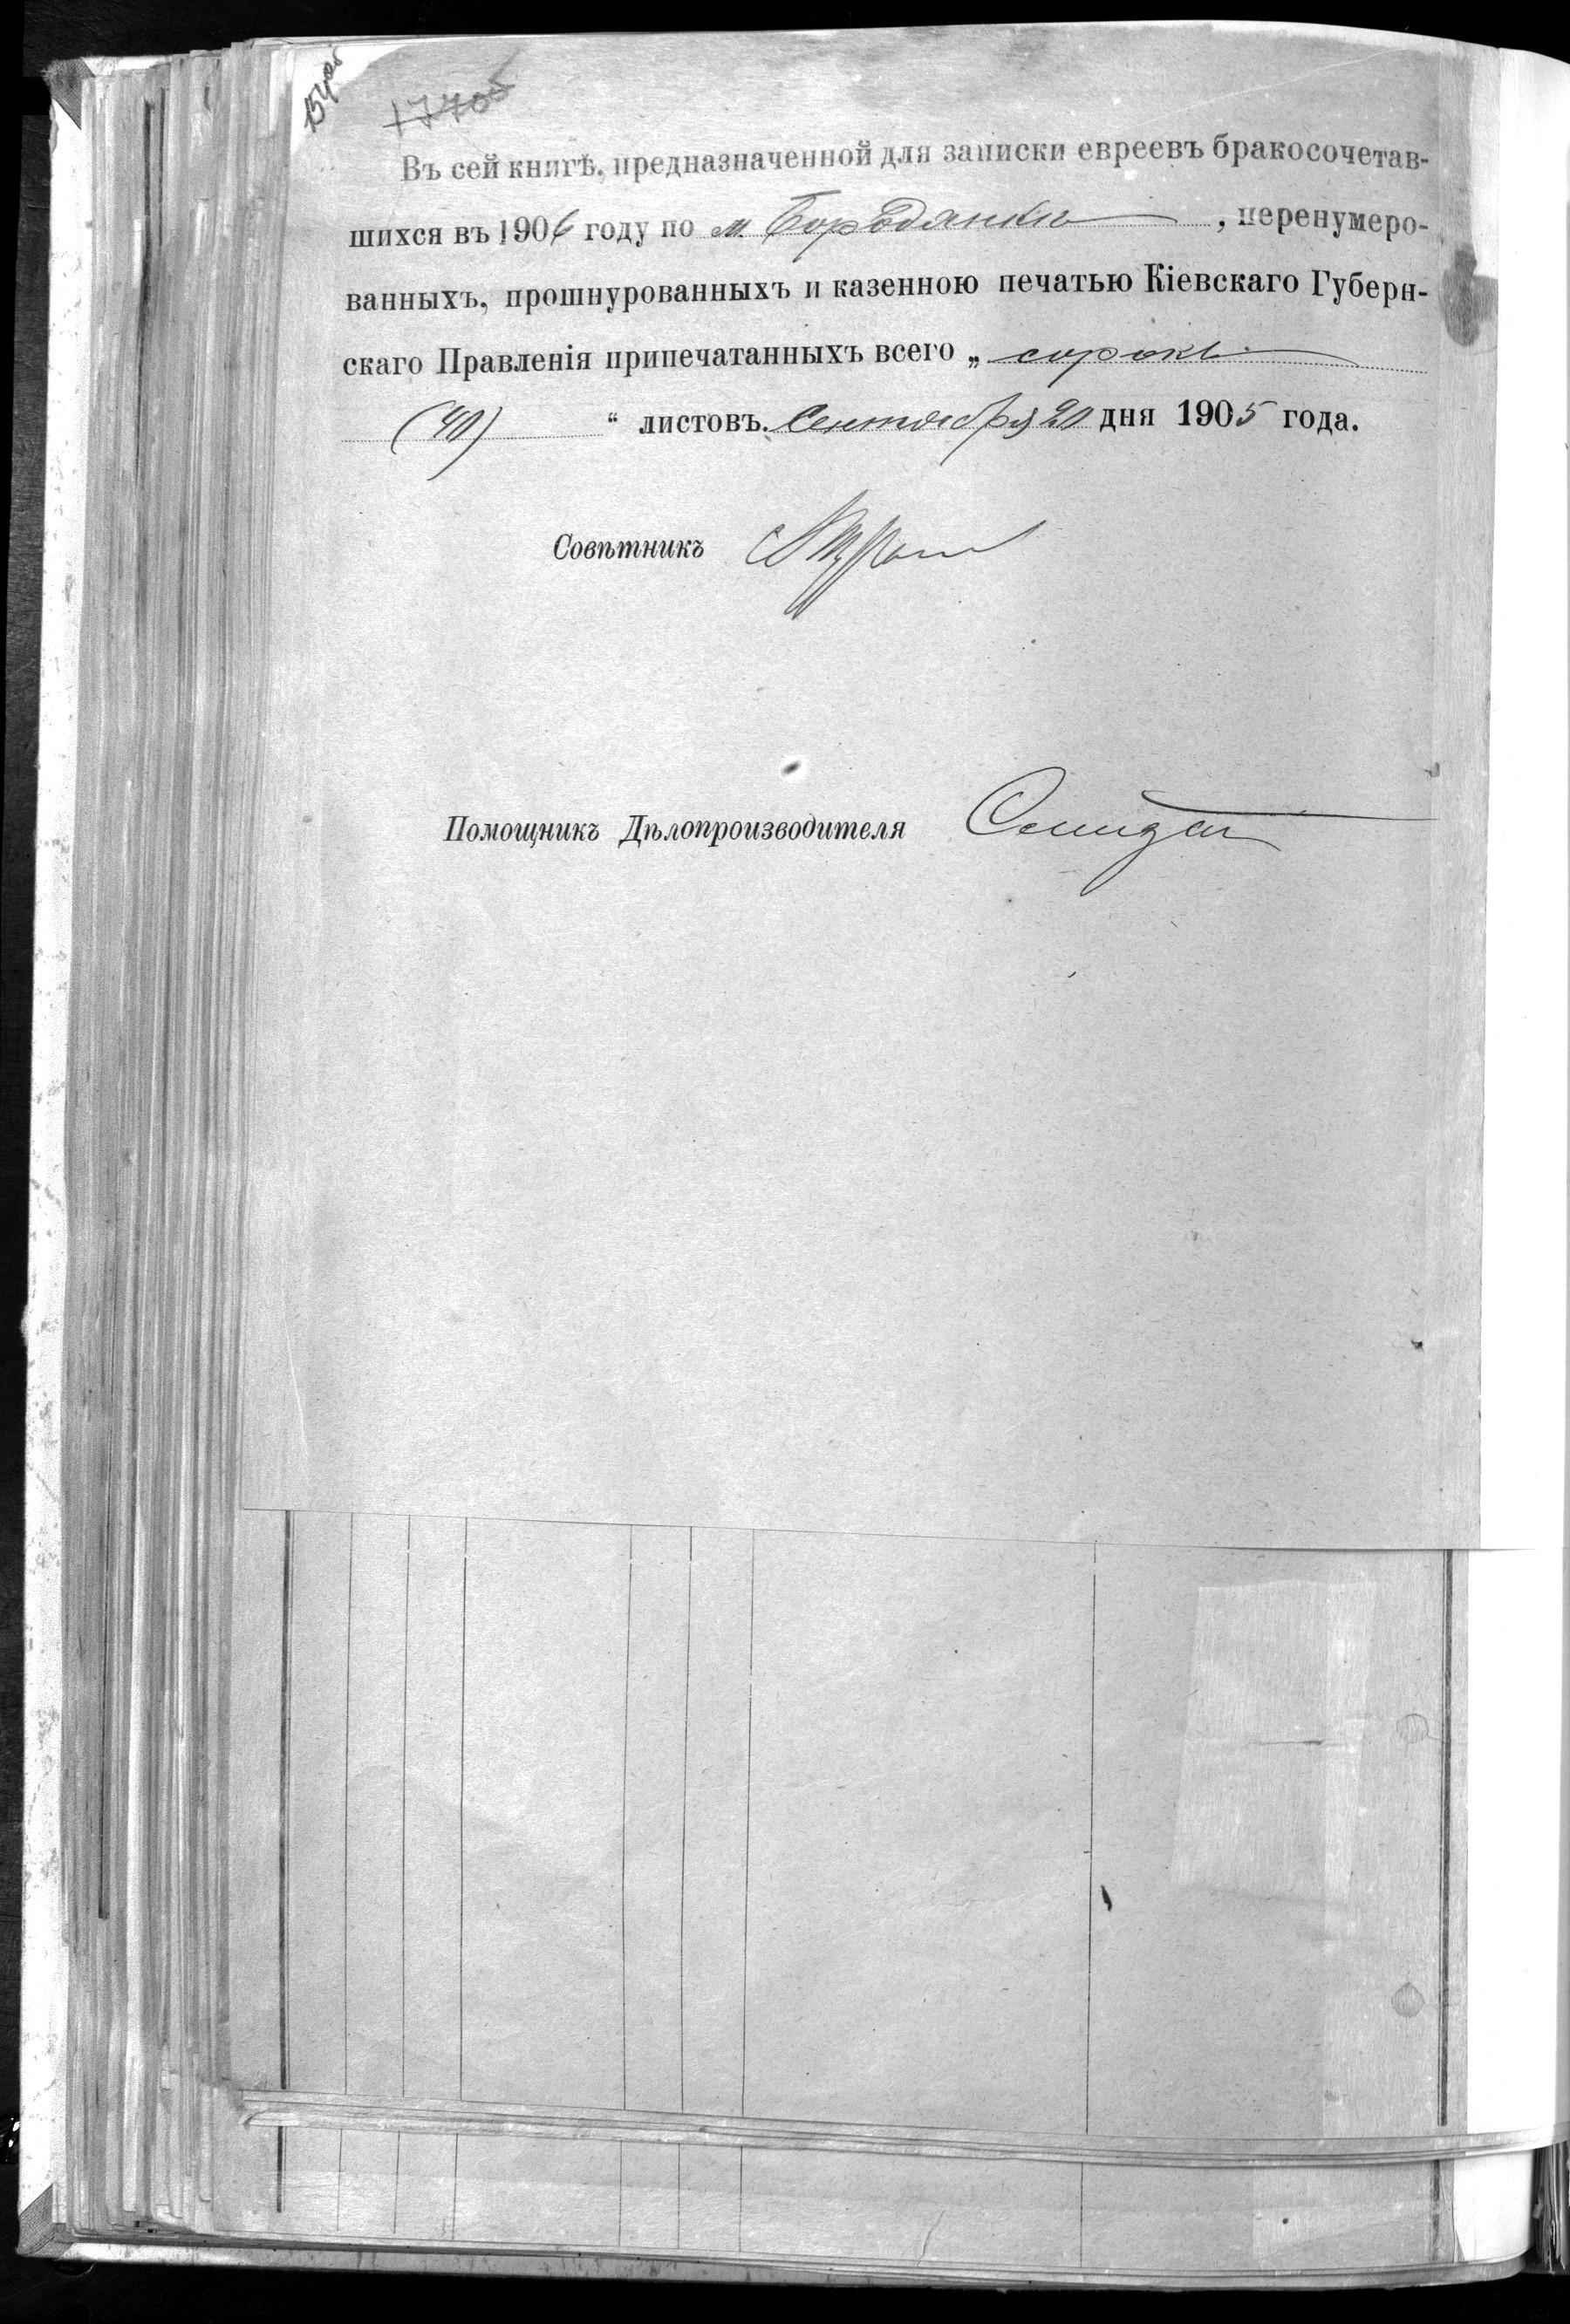 154об
177об
Въ сей книгѣ, предназначенной для записки евреевъ бракосочетав-
шихся въ 1906 году по м. Бородянкѣ, перенумеро-
ванныхъ, прошнурованныхъ и казенною печатью Кіевскаго Губерн-
скаго Правленія припечатанныхъ всего „ сорокъ
(40) “ листовъ. Сентября 20 дня 1905 года.
Совѣтникъ
Помощникъ Дѣлопроизводителя